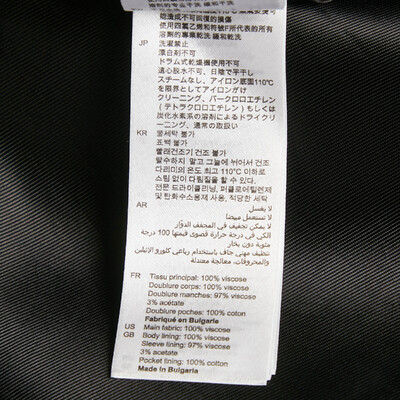 溶剂的专业干洗 缓和干洗
能造成不可回復的損傷
使用四氯乙烯和符號F所代表的所有
溶劑的專業乾洗 緩和乾洗
JP 洗濯禁止
漂白剤不可
ドラム式乾燥機使用不可
遠心脱水不可、日陰で平干し
スチームなし、アイロン底面110℃
を限界としてアイロンがけ
クリーニング、パークロロエチレン
(テトラクロロエチレン)もしくは
炭化水素系の溶剤によるドライクリ
ーニング、通常の取扱い
KR 물세탁 불가
표백 불가
빨래건조기 건조 불가
탈수하지 말고 그늘에 뉘어서 건조
다리미의 온도 최고 110℃ 이하로
스팀 없이 다림질을 할 수 있다.
전문 드라이클리닝, 퍼클로어틸렌제
및 탄화수소용제 사용, 적당한 세탁
AR لا يغسل
لا تستعمل مبيضا
لا يمكن تجفيف في المجفف الدوّار
الكي في درجة حرارة قصوى قيمتها 100 درجة
مئوية دون بخار
تنظيف مهني جاف باستخدام رباعي كلورو الإثيلين
والهيدروكربونات، معالجة معتدلة
FR Tissu principal: 100% viscose
Doublure corps: 100% viscose
Doublure manches: 97% viscose
3% acétate
Doublure poches: 100% coton
Fabriqué en Bulgarie
US Main fabric: 100% viscose
GB Body lining: 100% viscose
Sleeve lining: 97% viscose
3% acetate
Pocket lining: 100% cotton
Made in Bulgaria